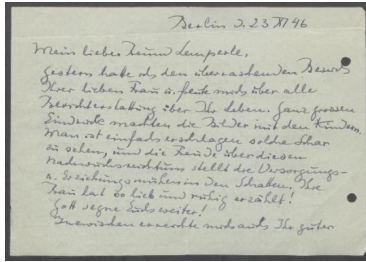 Berlin d. 23 XI 46
Mein lieber Freund Lemperle,
gestern hatte ich den überraschenden Besuch
Ihrer lieben Frau u. freute mich über alle
Berichterstattung über Ihr Leben. Ganz grossen
Eindruck machten die Bilder mit den Kindern.
Man ist einfach erschlagen solche Schar
zu sehen, und die Freude über diesen
Nachwuchsreichtum stellt die Versorgungs-
u. Erziehungsmühen in den Schatten. Ihre
Frau hat so lieb und ruhig erzählt!
Gott segne Euch weiter!
Inzwischen erreichte mich auch Ihr guter